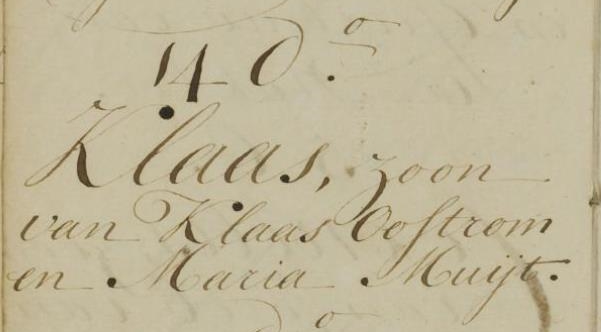 14 do.
Klaas, zoon
van Klaas Oostrom
en Maria Muijt.